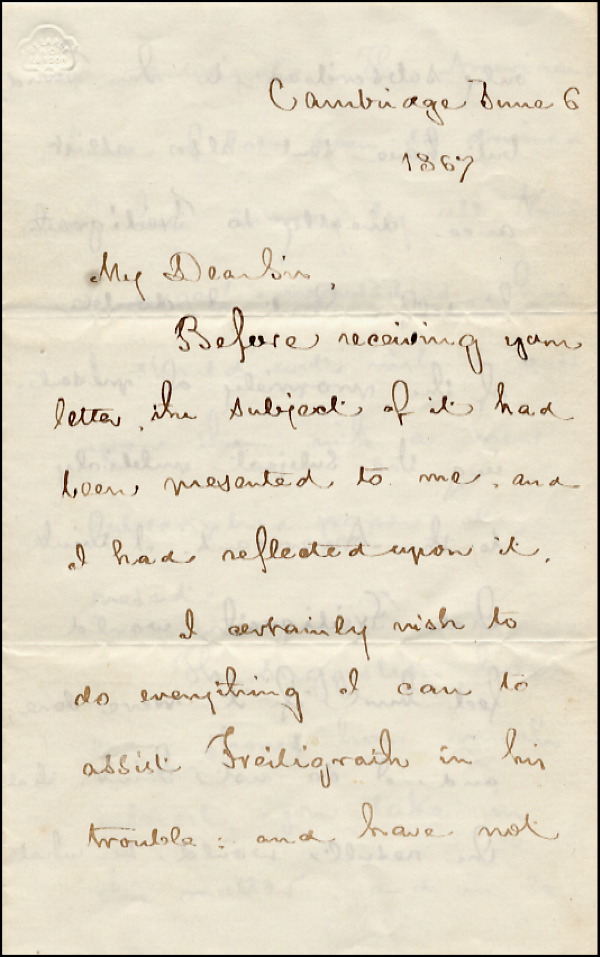 Cambridge June 6
1867
My Dear Sir,
Before receiving your
letter, the subject of it had
been presented to me, and
I had reflected upon it.
I certainly wish to
do everything I can to
assist Freiligrath in his
trouble: and have not